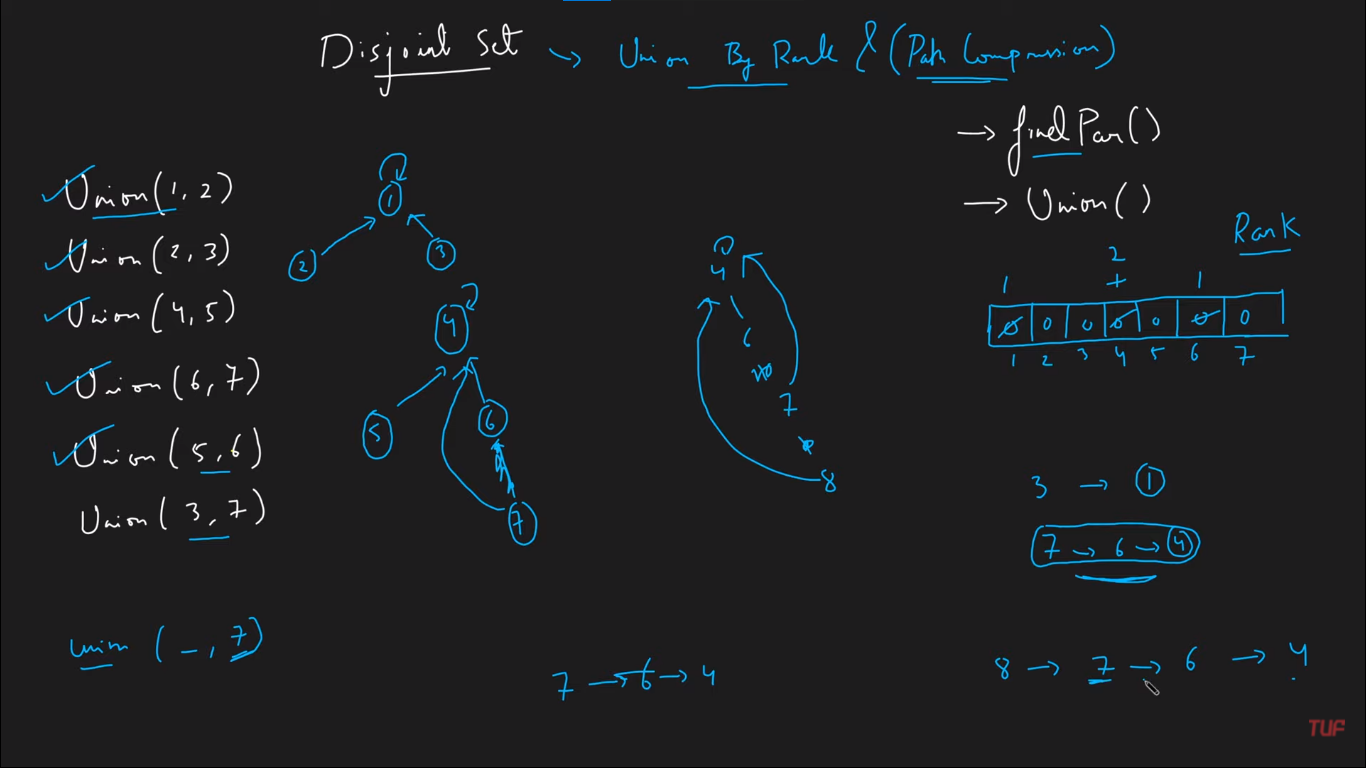 Disjoint Set → Union By Rank & (Path Compression)
→ findPar()
→ Union()
Rank
Union(1, 2)
Union(2, 3)
Union(4, 5)
Union(6, 7)
Union(5, 6)
Union(3, 7)
Union(_, 7)
1
2
3
4
5
6
7
4
6
7
8
1 2 1
0 0 0 0 0 0 0
1 2 3 4 5 6 7
3 → 1
7 → 6 → 4
7 → 6 → 4
8 → 7 → 6 → 4
TUF